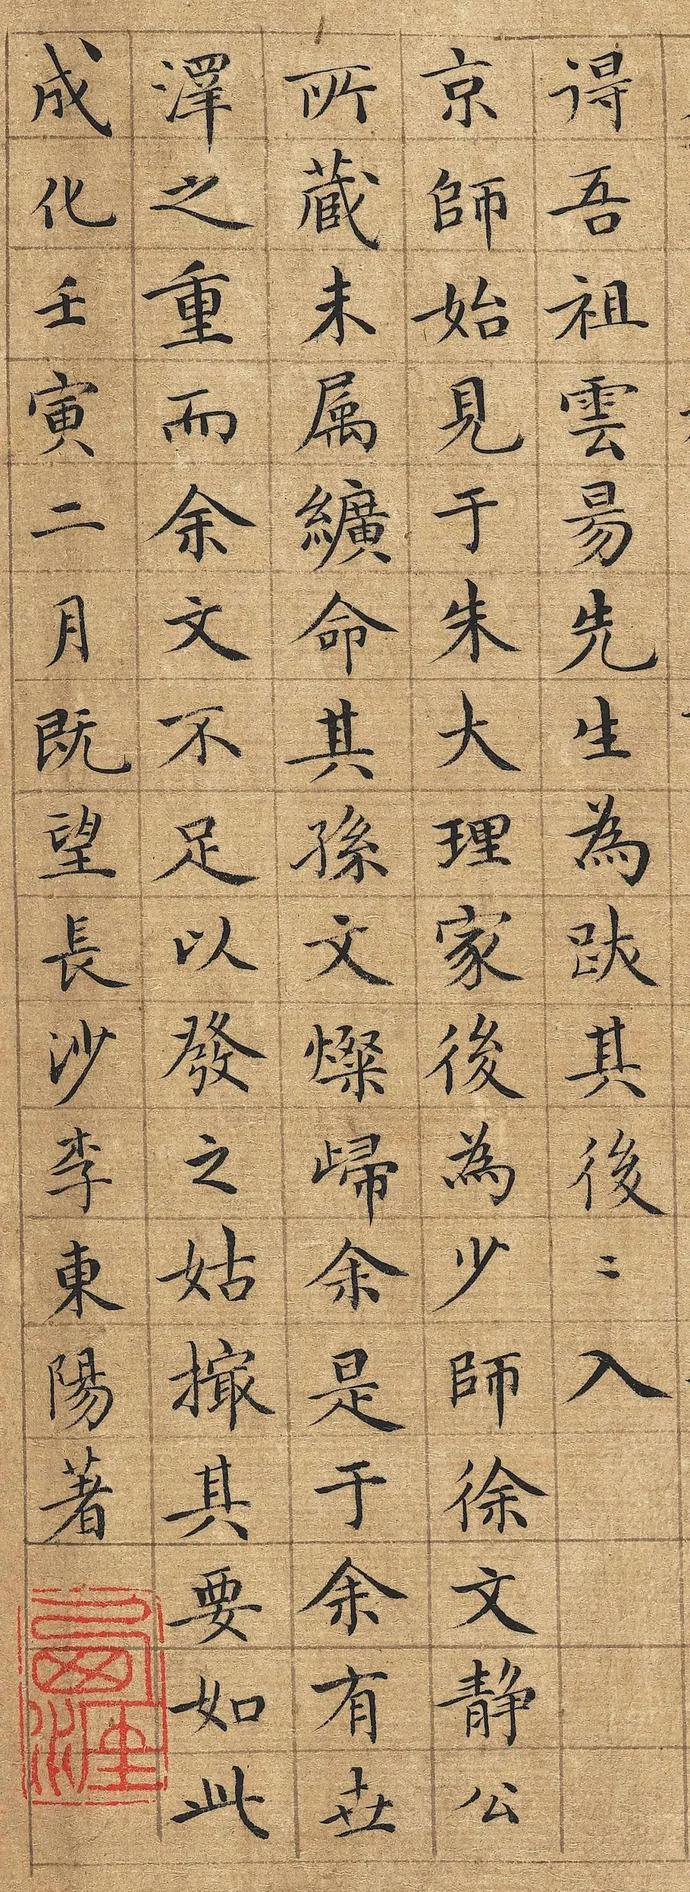 得吾祖雲昜先生為跋其後〻入
京師始見于朱大理家後為少師徐文靜公
所蔵未属纊命其孫文燦歸余是于余有世
澤之重而余文不足以發之姑撮其要如此
成化壬寅二月既望長沙李東陽著